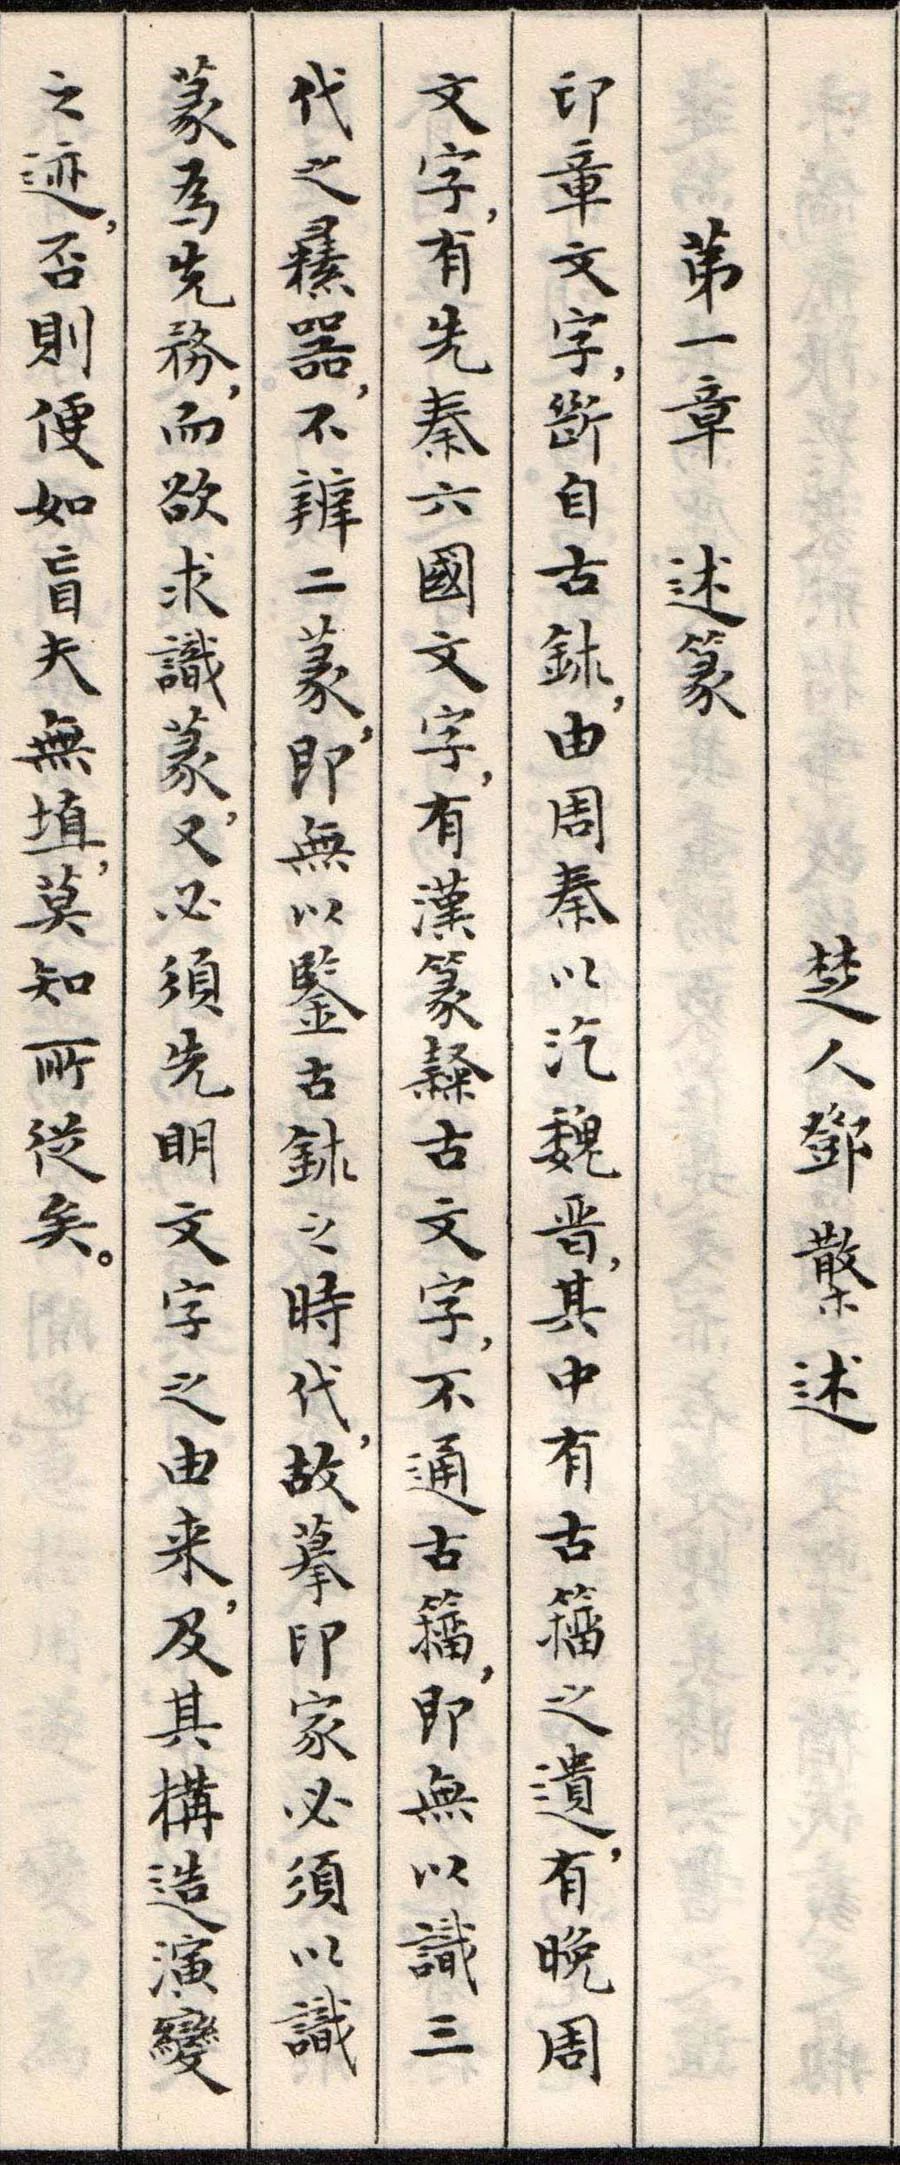 楚人鄧散木述
苐一章 述篆
印章文字，斷自古鉥，由周秦以汔魏晋，其中有古籀之遺，有晚周
文字，有先秦六國文字，有漢篆繇古文字，不通古籀，即無以識三
代之彝器，不辨二篆，即無以鑒古鉥之時代，故摹印家必須以識
篆爲先務，而欲求識篆，又必須先明文字之由来，及其構造演變
之迹，否則便如盲夫無埴，莫知所從矣。